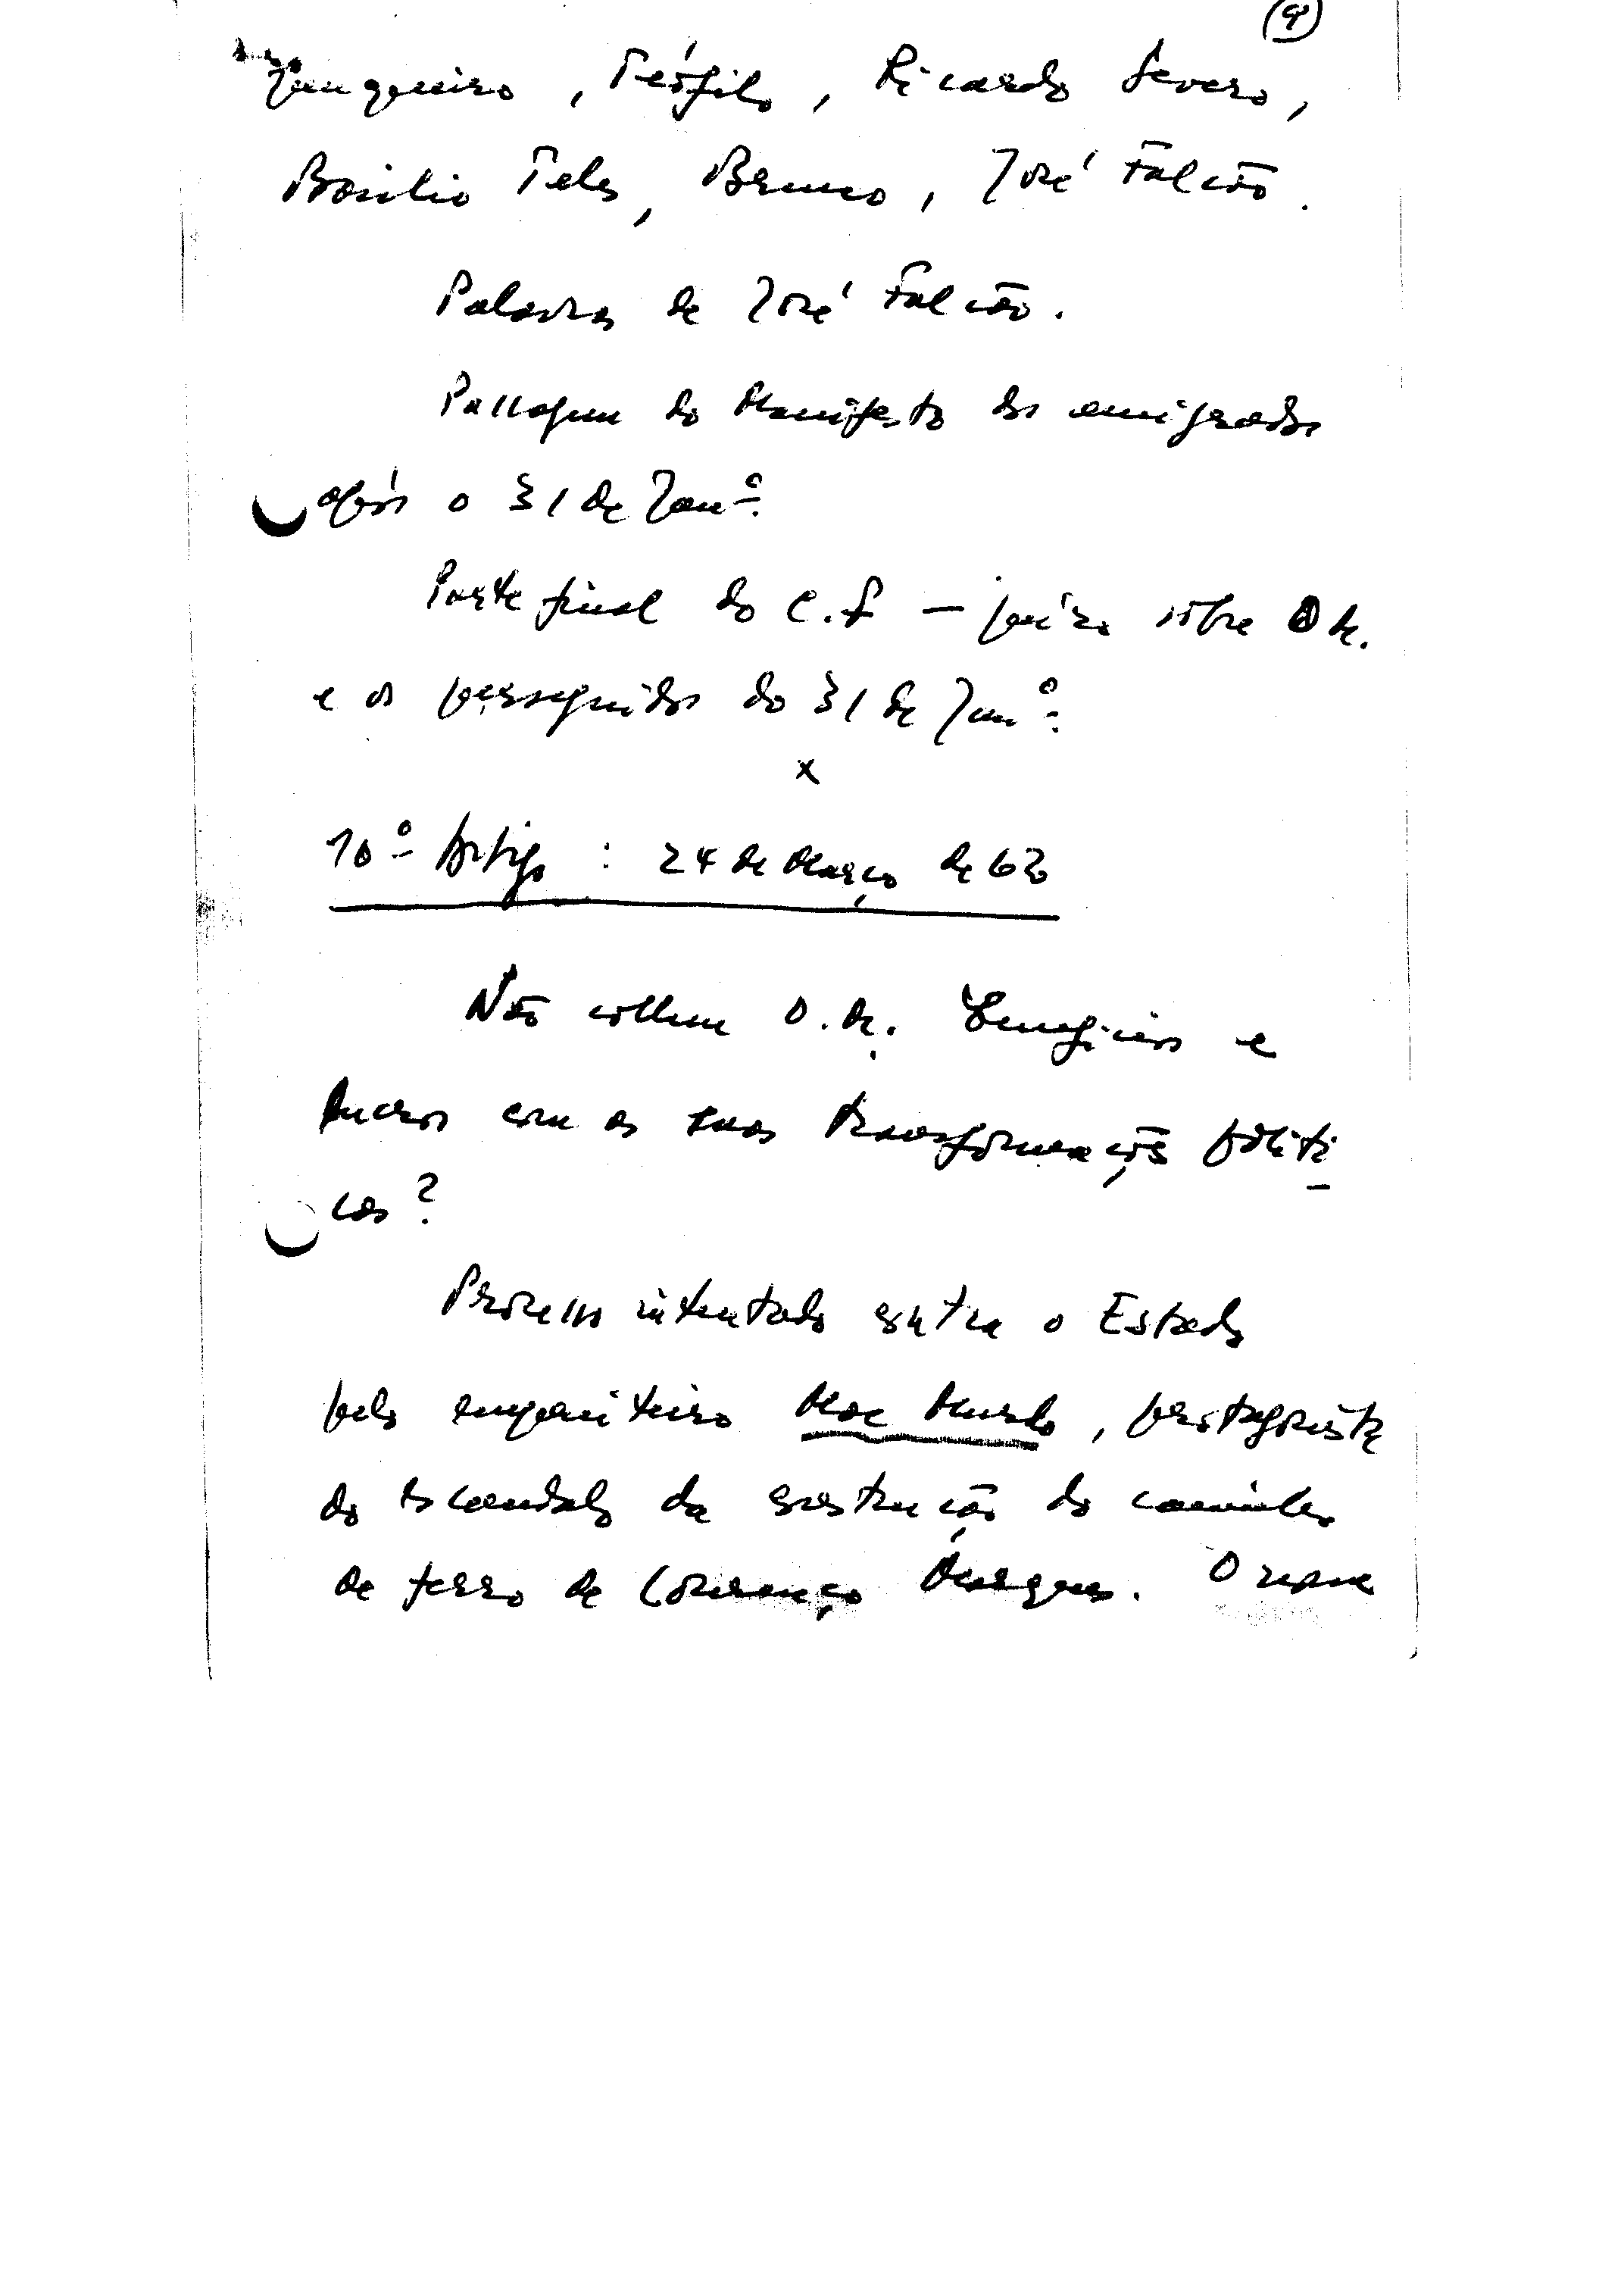 9
Junqueiro, Teófilo, Ricardo Severo,
Basílio Teles, Bruno, José Falcão.
Palavras de José Falcão.
Passagem do Manifesto dos emigrados
após o 31 de Janº.
Parte final do C. f — juízo sôbre O. M.
e os perseguidos do 31 de Janº.
x
10º Artigo : 24 de Março de 62
Não colheu O. M. benefícios e
lucros com as suas transformações políti
cas?
Processo intentado contra o Estado
pelo empreiteiro Mac Murdo, protagonista
do escandalo da construção do caminho
de ferro de Lourenço Marques. O repre